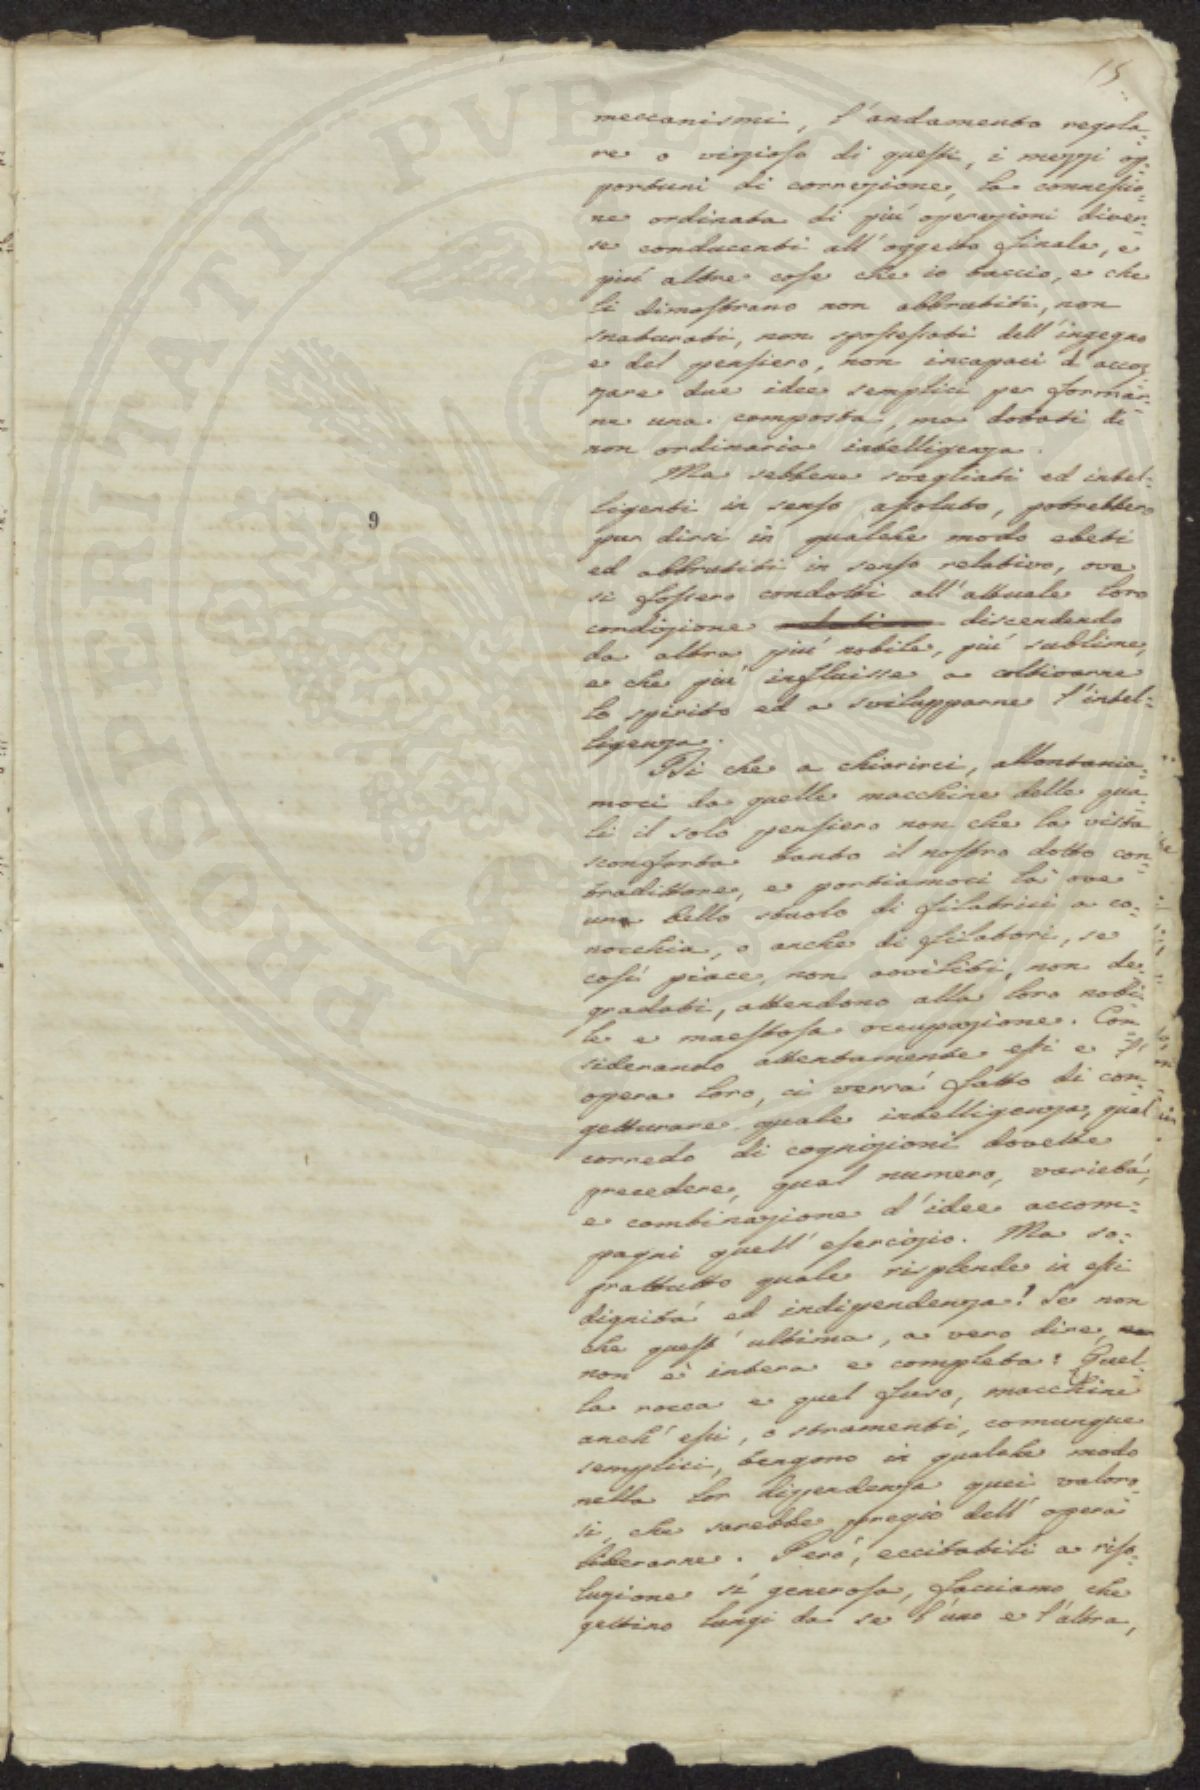 15
meccanismi, l'andamento regola-
re o vizioso di questi, i mezzi op-
portuni di correzione, la connessio-
ne ordinata di più operazioni diver-
se conducenti all'oggetto finale, e
più altre cose che io taccio, e che
li dimostrano non abbrutiti, non
snaturati, non spossessati dell'ingegno
e del pensiero, non incapaci d'accoz-
zare due idee semplici per formar-
ne una composta, ma dotati di
non ordinaria intelligenza.
Ma sebbene svegliati ed intel-
ligenti in senso assoluto, potrebbero
pur dirsi in qualche modo ebeti
ed abbrutiti in senso relativo, ove
si fossero condotti all'attuale loro
condizione discendendo
da altra più nobile, più sublime,
e che più influisse a coltivarne
lo spirito ed a svilupparne l'intel-
ligenza.
Di che a chiarirci, allontania-
moci da quelle macchine delle qua-
li il solo pensiero non che la vista
sconforta tanto il nostro dotto con-
tradittore, e portiamoci là ove
uno bello stuolo di filatrici a co-
nocchia, o anche di filatori, se
così piace, non avviliti, non de-
gradati, attendono alla loro nobi-
le e maestosa occupazione. Con
siderando attentamente essi e l'
opera loro, ci verrà fatto di con-
getturare quale intelligenza, qual
corredo di cognizioni dovette
precedere, qual numero, varietà,
e combinazione d'idee accom-
pagni quell'esercizio. Ma so-
prattutto quale risplende in essi
dignità ed indipendenza! Se non
che quest'ultima, a vero dire,
non è intera e completa: Quel-
la rocca e quel fuso, macchine
anch'essi, o stramenti, comunque
semplici, tengono in qualche modo
nella lor dipendenza quei valoro-
si, che sarebbe pregio dell'opera
liberarne. Però, eccitatili a riso-
luzione sì generosa, facciamo che
gettino lungi da se l'uno e l'altra,
9
PROSPERITATI PVBLIC